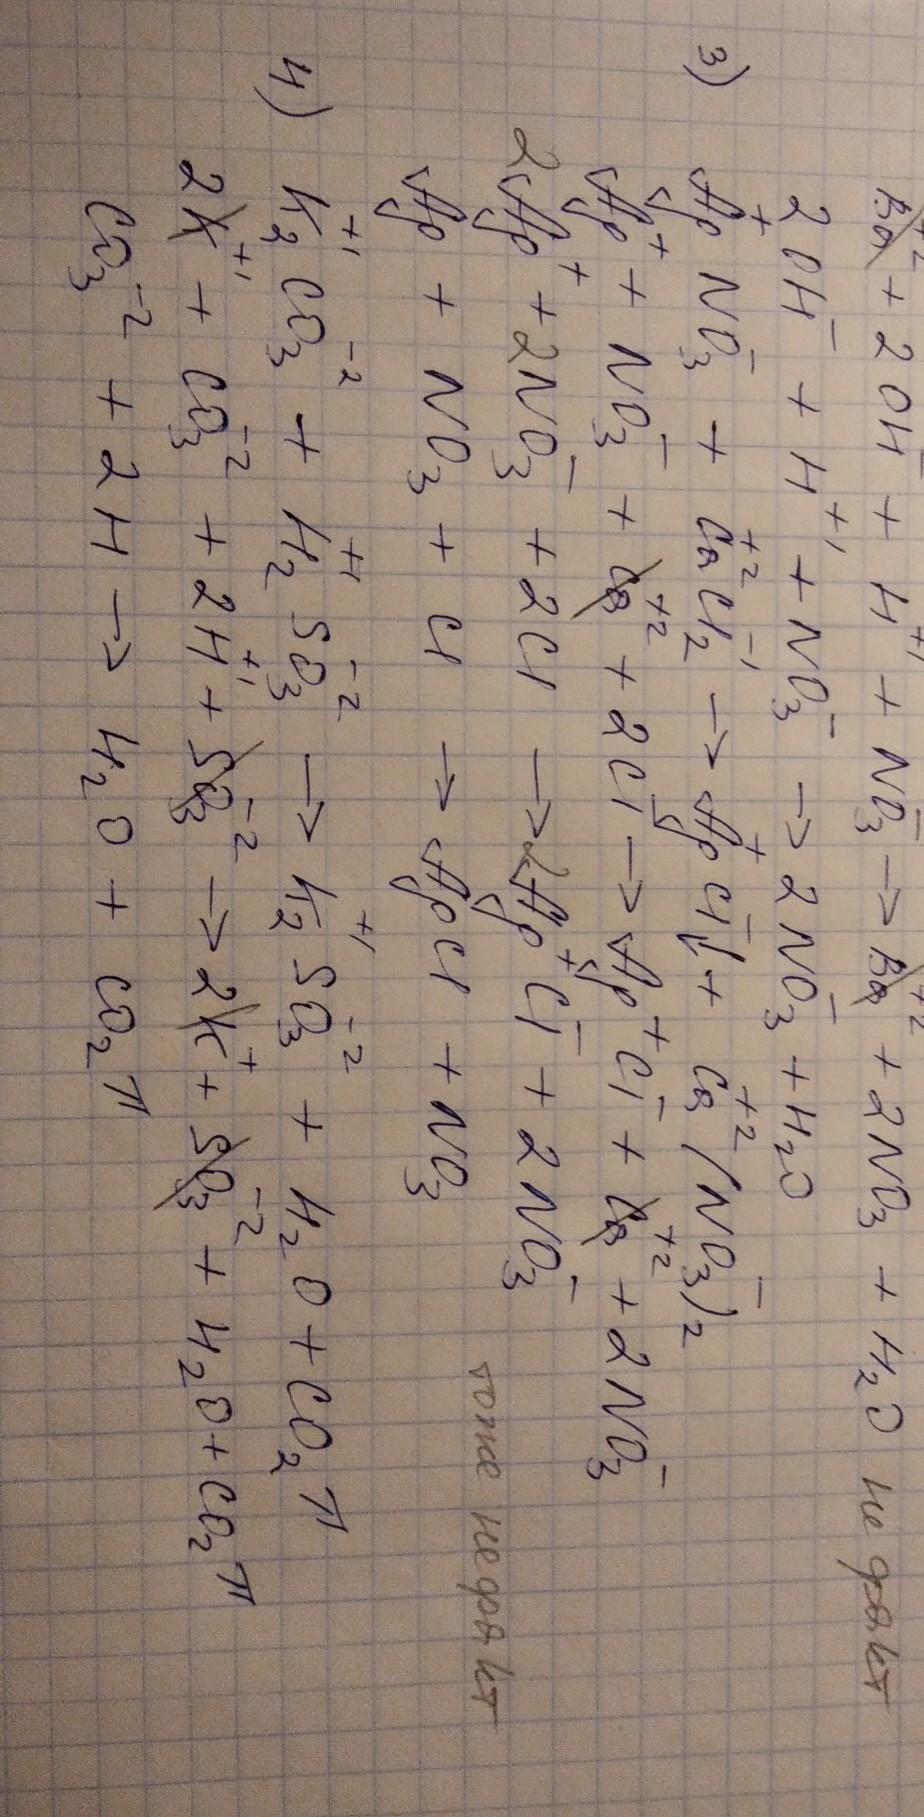 Ba⁺² + 2OH⁻ + H⁺¹ + NO₃⁻ → Ba⁺² + 2NO₃⁻ + H₂O не факт
2OH⁻ + H⁺¹ + NO₃⁻ → 2NO₃⁻ + H₂O
3) Ag⁺NO₃⁻ + Ca⁺²Cl₂⁻¹ → Ag⁺Cl⁻↓ + Ca⁺²(NO₃⁻)₂
Ag⁺ + NO₃⁻ + Ca⁺² + 2Cl⁻ → Ag⁺Cl⁻ + Ca⁺² + 2NO₃⁻
2Ag⁺ + 2NO₃⁻ + 2Cl → 2Ag⁺Cl⁻ + 2NO₃⁻
Ag + NO₃ + Cl → AgCl + NO₃ тоже не факт
4) K₂⁺¹CO₃⁻² + H₂⁺¹SO₃⁻² → K₂⁺¹SO₃⁻² + H₂O + CO₂↑
2K⁺¹ + CO₃⁻² + 2H⁺¹ + SO₃⁻² → 2K⁺ + SO₃⁻² + H₂O + CO₂↑
CO₃⁻² + 2H → H₂O + CO₂↑